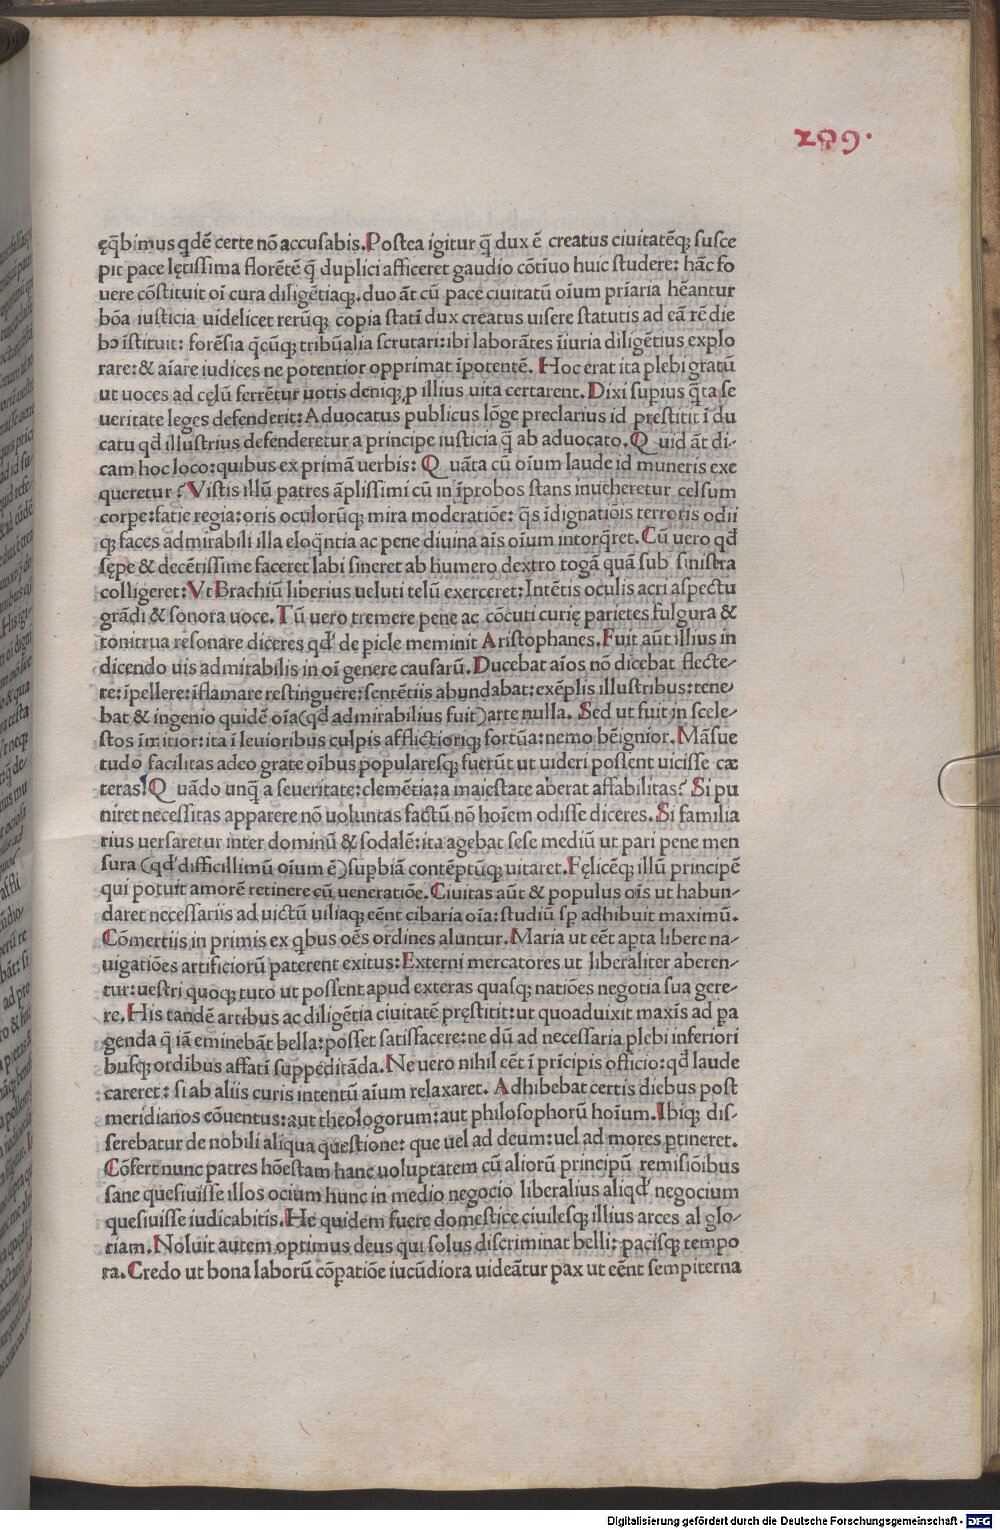 289.
ęq̃bimus qdẽ certe nõ accusabis. Postea igitur q̃ dux ẽ creatus ciuitatẽqȝ susce
pit pace lętissima florẽtẽ q̃ duplici afficeret gaudio cõtĩuo huic studere: hãc fo
uere cõstituit oĩ cura diligẽtiaqȝ. duo ãt cũ pace ciuitatũ oĩum prĩaria hẽantur
bõa iusticia uidelicet rerũqȝ copia statĩ dux creatus uisere statutis ad eã rẽ die
bɔ ĩstituit: forẽsia q̃cũqȝ tribũalia scrutari: ibi laborãtes ĩiuria diligẽtius explo
rare: & aĩare iudices ne potentior opprimat ĩpotentẽ. Hoc erat ita plebi gratũ
ut uoces ad cęlũ ferrẽtur uotis deniqȝ ꝓ illius uita certarent. Dixi supius q̃ta se
ueritate leges defenderit: Aduocatus publicus lõge preclarius id pręstitit ĩ du
catu qd̛ illustrius defenderetur a principe iusticia q̃ ab aduocato. Quid ãt di-
cam hoc loco: quibus ex primã uerbis: Quãta cũ oĩum laude id muneris exe
queretur? Vistis illũ patres ãplissimi cũ in ĩprobos stans inueheretur celsum
corpe: fatie regia: oris oculorũqȝ mira moderatiõe: q̃s ĩdignatiõis terroris odii
qȝ faces admirabili illa eloq̃ntia ac pene diuina aĩs oĩum intorq̃ret. Cũ uero qd̛
sępe & decẽtissime faceret labi sineret ab humero dextro togã quã sub sinistra
colligeret: Vt Brachiũ liberius ueluti telũ exerceret: Intẽtis oculis acri aspectu
grãdi & sonora uoce. Tũ uero tremere pene ac cõcuti curię parietes fulgura &
tonitrua resonare diceres qd̛ de picle meminit Aristophanes. Fuit aũt illius in
dicendo uis admirabilis in oĩ genere causarũ. Ducebat aĩos nõ dicebat flecte-
re: ĩpellere: ĩflamare restinguere: sentẽtiis abundabat: exẽplis illustribus: tene-
bat & ingenio quidẽ oĩa (qd̛ admirabilius fuit) arte nulla. Sed ut fuit in scele-
stos ĩmitior: ita ĩ leuioribus culpis afflictioriqȝ fortũa: nemo bẽignior. Mãsue
tudo facilitas adeo grate oĩbus popularesqȝ fuerũt ut uideri possent uicisse cæ
teras! Quãdo unq̃ a seueritate: clemẽtia: a maiestate aberat affabilitas? Si pu
niret necessitas apparere nõ uoluntas factũ nõ hoĩem odisse diceres. Si familia
rius uersaretur inter dominũ & sodalẽ: ita agebat sese mediũ ut pari pene men
sura (qd̛ difficillimũ oĩum ẽ) supbiã contẽptũqȝ uitaret. Felicẽqȝ illũ principẽ
qui potuit amorẽ retinere cũ ueneratiõe. Ciuitas aũt & populus oĩs ut habun-
daret necessariis ad uictũ uiliaqȝ eẽnt cibaria oĩa: studiũ sp adhibuit maximũ.
Cõmertiis in primis ex qbus oẽs ordines aluntur. Maria ut eẽt apta libere na-
uigatiões artificiorũ paterent exitus: Externi mercatores ut liberaliter aberen-
tur: uestri quoqȝ tuto ut possent apud exteras quasqȝ natiões negotia sua gere-
re. His tandẽ artibus ac diligẽtia ciuitatẽ pręstitit: ut quoaduixit maxĩs ad pa
genda q̃ iã eminebãt bella: posset satisfacere: ne dũ ad necessaria plebi inferiori
busqȝ ordĩbus affatĩ suppeditãda. Ne uero nihil eẽt ĩ prĩcipis officio: qd̛ laude
careret: si ab aliis curis intentũ aĩum relaxaret. Adhibebat certis diebus post
meridianos cõuentus: aut theologorum: aut philosophorũ hoĩum. Ibiqȝ dis-
serebatur de nobili aliqua questione: que uel ad deum: uel ad mores ptineret.
Cõfert nunc patres hõestam hanc uoluptatem cũ aliorũ principũ remisiõibus
sane quesiuisse illos ocium hunc in medio negocio liberalius aliqd̛ negocium
quesiuisse iudicabitis. He quidem fuere domestice ciuilesqȝ illius arces al glo-
riam. Noluit autem optimus deus qui solus discriminat belli: pacisqȝ tempo
ra. Credo ut bona laborũ cõpatiõe iucũdiora uideãtur pax ut eẽnt sempiterna
Digitalisierung gefördert durch die Deutsche Forschungsgemeinschaft - DFG